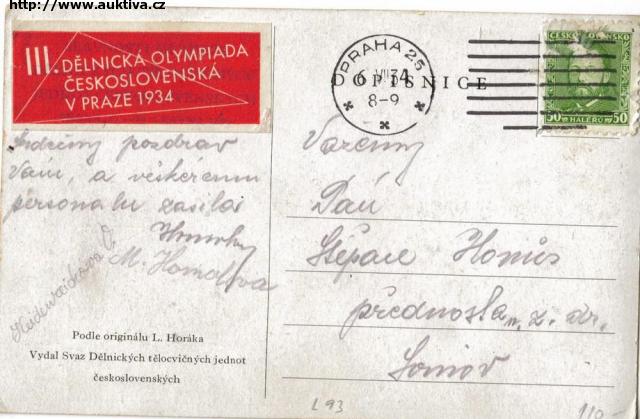 http://www.auktiva.cz
III. DĚLNICKÁ OLYMPIADA
ČESKOSLOVENSKÁ
V PRAZE 1934
PRAHA 25
6 VII 34
8-9
DOPISNICE
ČESKOSLOVENSKO
50 HALÉŘŮ 50
Srdečný pozdrav
Vám, a veškerému
personalu zasílá
M. Homolova
Vázený
Pán
Štěpan
přednosta n. z. dr.
Podle originálu L. Horáka
Vydal Svaz Dělnických tělocvičných jednot
československých
L 93
110-